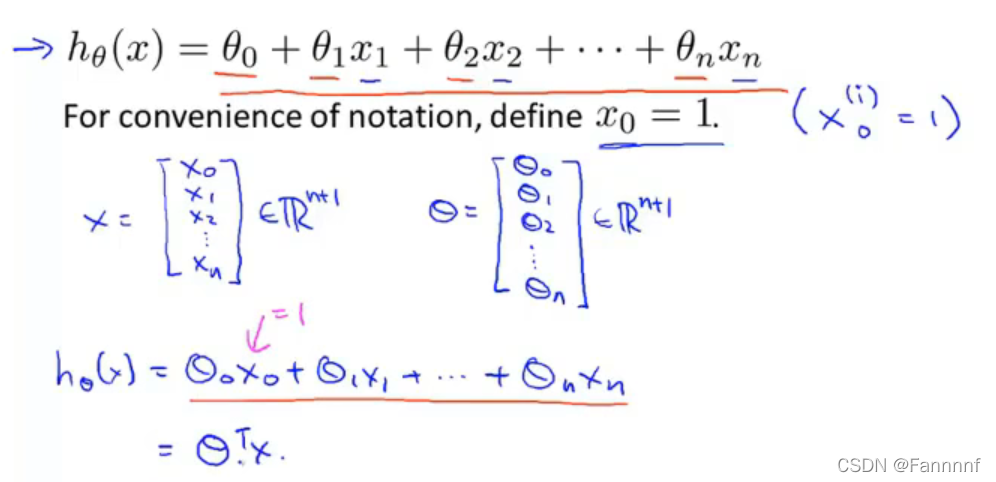 → hθ(x) = θ₀ + θ₁x₁ + θ₂x₂ + ··· + θₙxₙ
For convenience of notation, define x₀ = 1. (x₀⁽ⁱ⁾ = 1)
x = [x₀ x₁ x₂ ⋮ xₙ] ∈ ℝⁿ⁺¹ θ = [θ₀ θ₁ θ₂ ⋮ θₙ] ∈ ℝⁿ⁺¹
= 1
hθ(x) = θ₀x₀ + θ₁x₁ + ··· + θₙxₙ
= θᵀx.
CSDN @Fannnnf